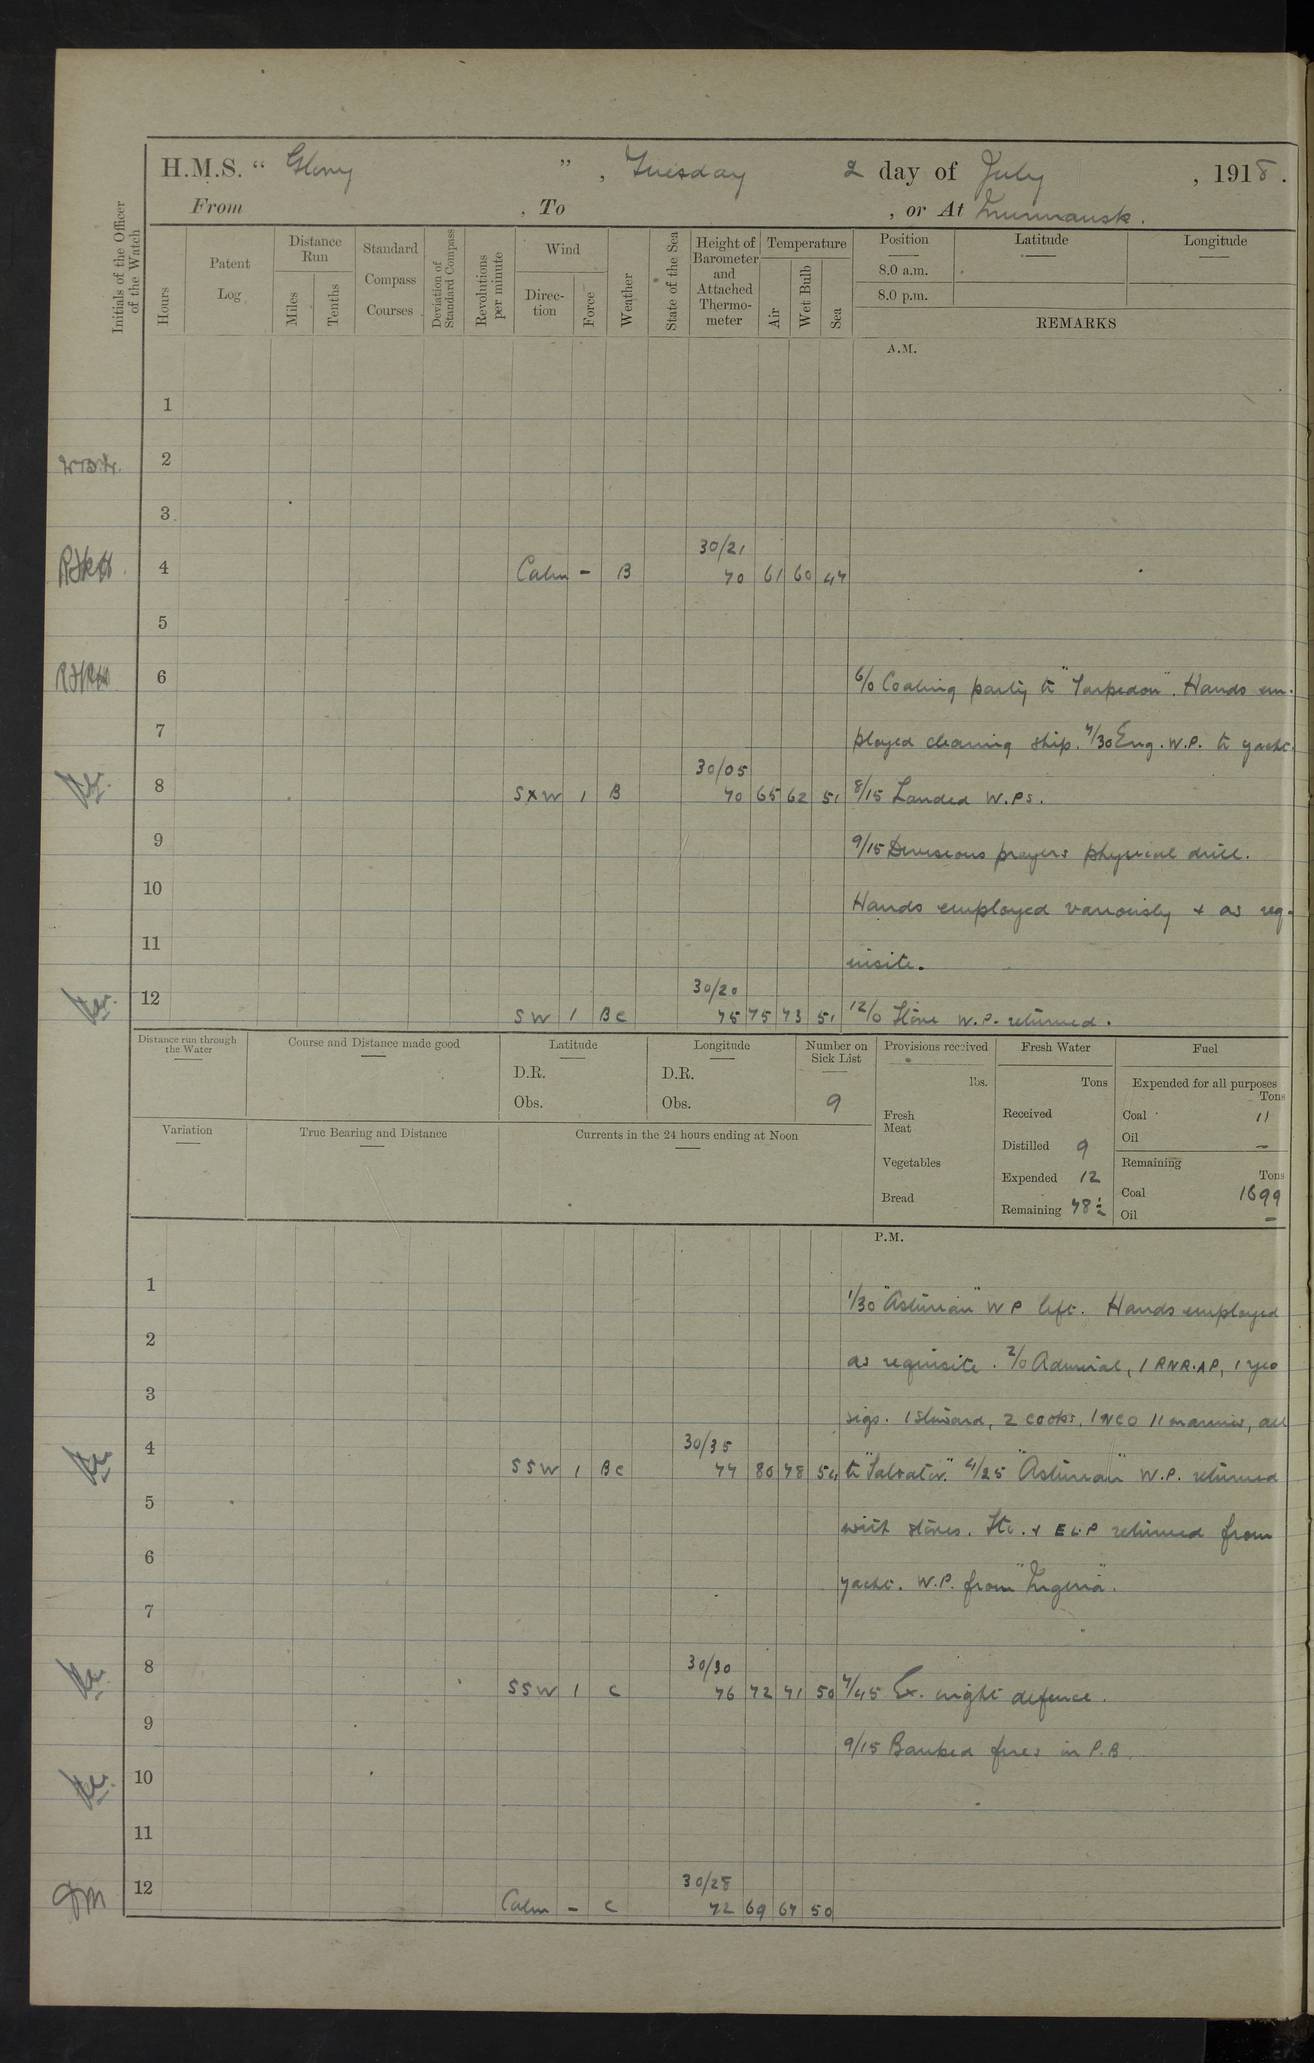 H.M.S. “ Glory ” , Tuesday 2 day of July , 1918 .
From , To , or At Murmansk .
Initials of the Officer of the Watch
Hours
Patent Log
Distance Run
Miles
Tenths
Standard Compass Courses
Deviation of Standard Compass
Revolutions per minute
Wind
Direc-tion
Force
Weather
State of the Sea
Height of Barometer and Attached Thermo-meter
Temperature
Air
Wet Bulb
Sea
Position Latitude Longitude
8.0 a.m.
8.0 p.m.
REMARKS
A.M.
1
2
3
30/21
4 Calm - B 70 61 60 47
5
6 6/0 Coaling party to "Tarpedon". Hands em-
7 ployed cleaning ship. 7/30 Eng. W.P. to yacht.
30/05
8 SXW 1 B 70 65 62 51 8/15 Landed W.Ps.
9 9/15 Divisions prayers physical drill.
10 Hands employed variously + as req-
11 uisite.
30/20
12 SW 1 BC 75 75 73 51 12/0 Store W.P. returned.
Distance run through the Water
Course and Distance made good
Latitude
D.R.
Obs.
Longitude
D.R.
Obs.
Number on Sick List
9
Provisions received
lbs.
Fresh Meat
Vegetables
Bread
Fresh Water
Tons
Received
Distilled 9
Expended 12
Remaining 78½
Fuel
Expended for all purposes
Tons
Coal 11
Oil –
Remaining
Tons
Coal 1699
Oil –
Variation
True Bearing and Distance
Currents in the 24 hours ending at Noon
P.M.
1 1/30 "Asturian" W P left. Hands employed
2 as requisite. 2/0 Admiral, 1 RNR.AP, 1 yeo
3 sigs. 1 Steward, 2 cooks, 1 NCO 11 marines, all
30/35
4 SSW 1 BC 77 80 78 54 to "Salvator." 4/25 "Asturian" W.P. returned
5 with stores. Sto. + E L.P returned from
6 yacht. W.P. from "Nigeria".
7
30/30
8 SSW 1 C 76 72 71 50 7/45 Ex. night defence.
9 9/15 Banked fires in P.B.
10
11
30/28
12 Calm - C 72 69 67 50